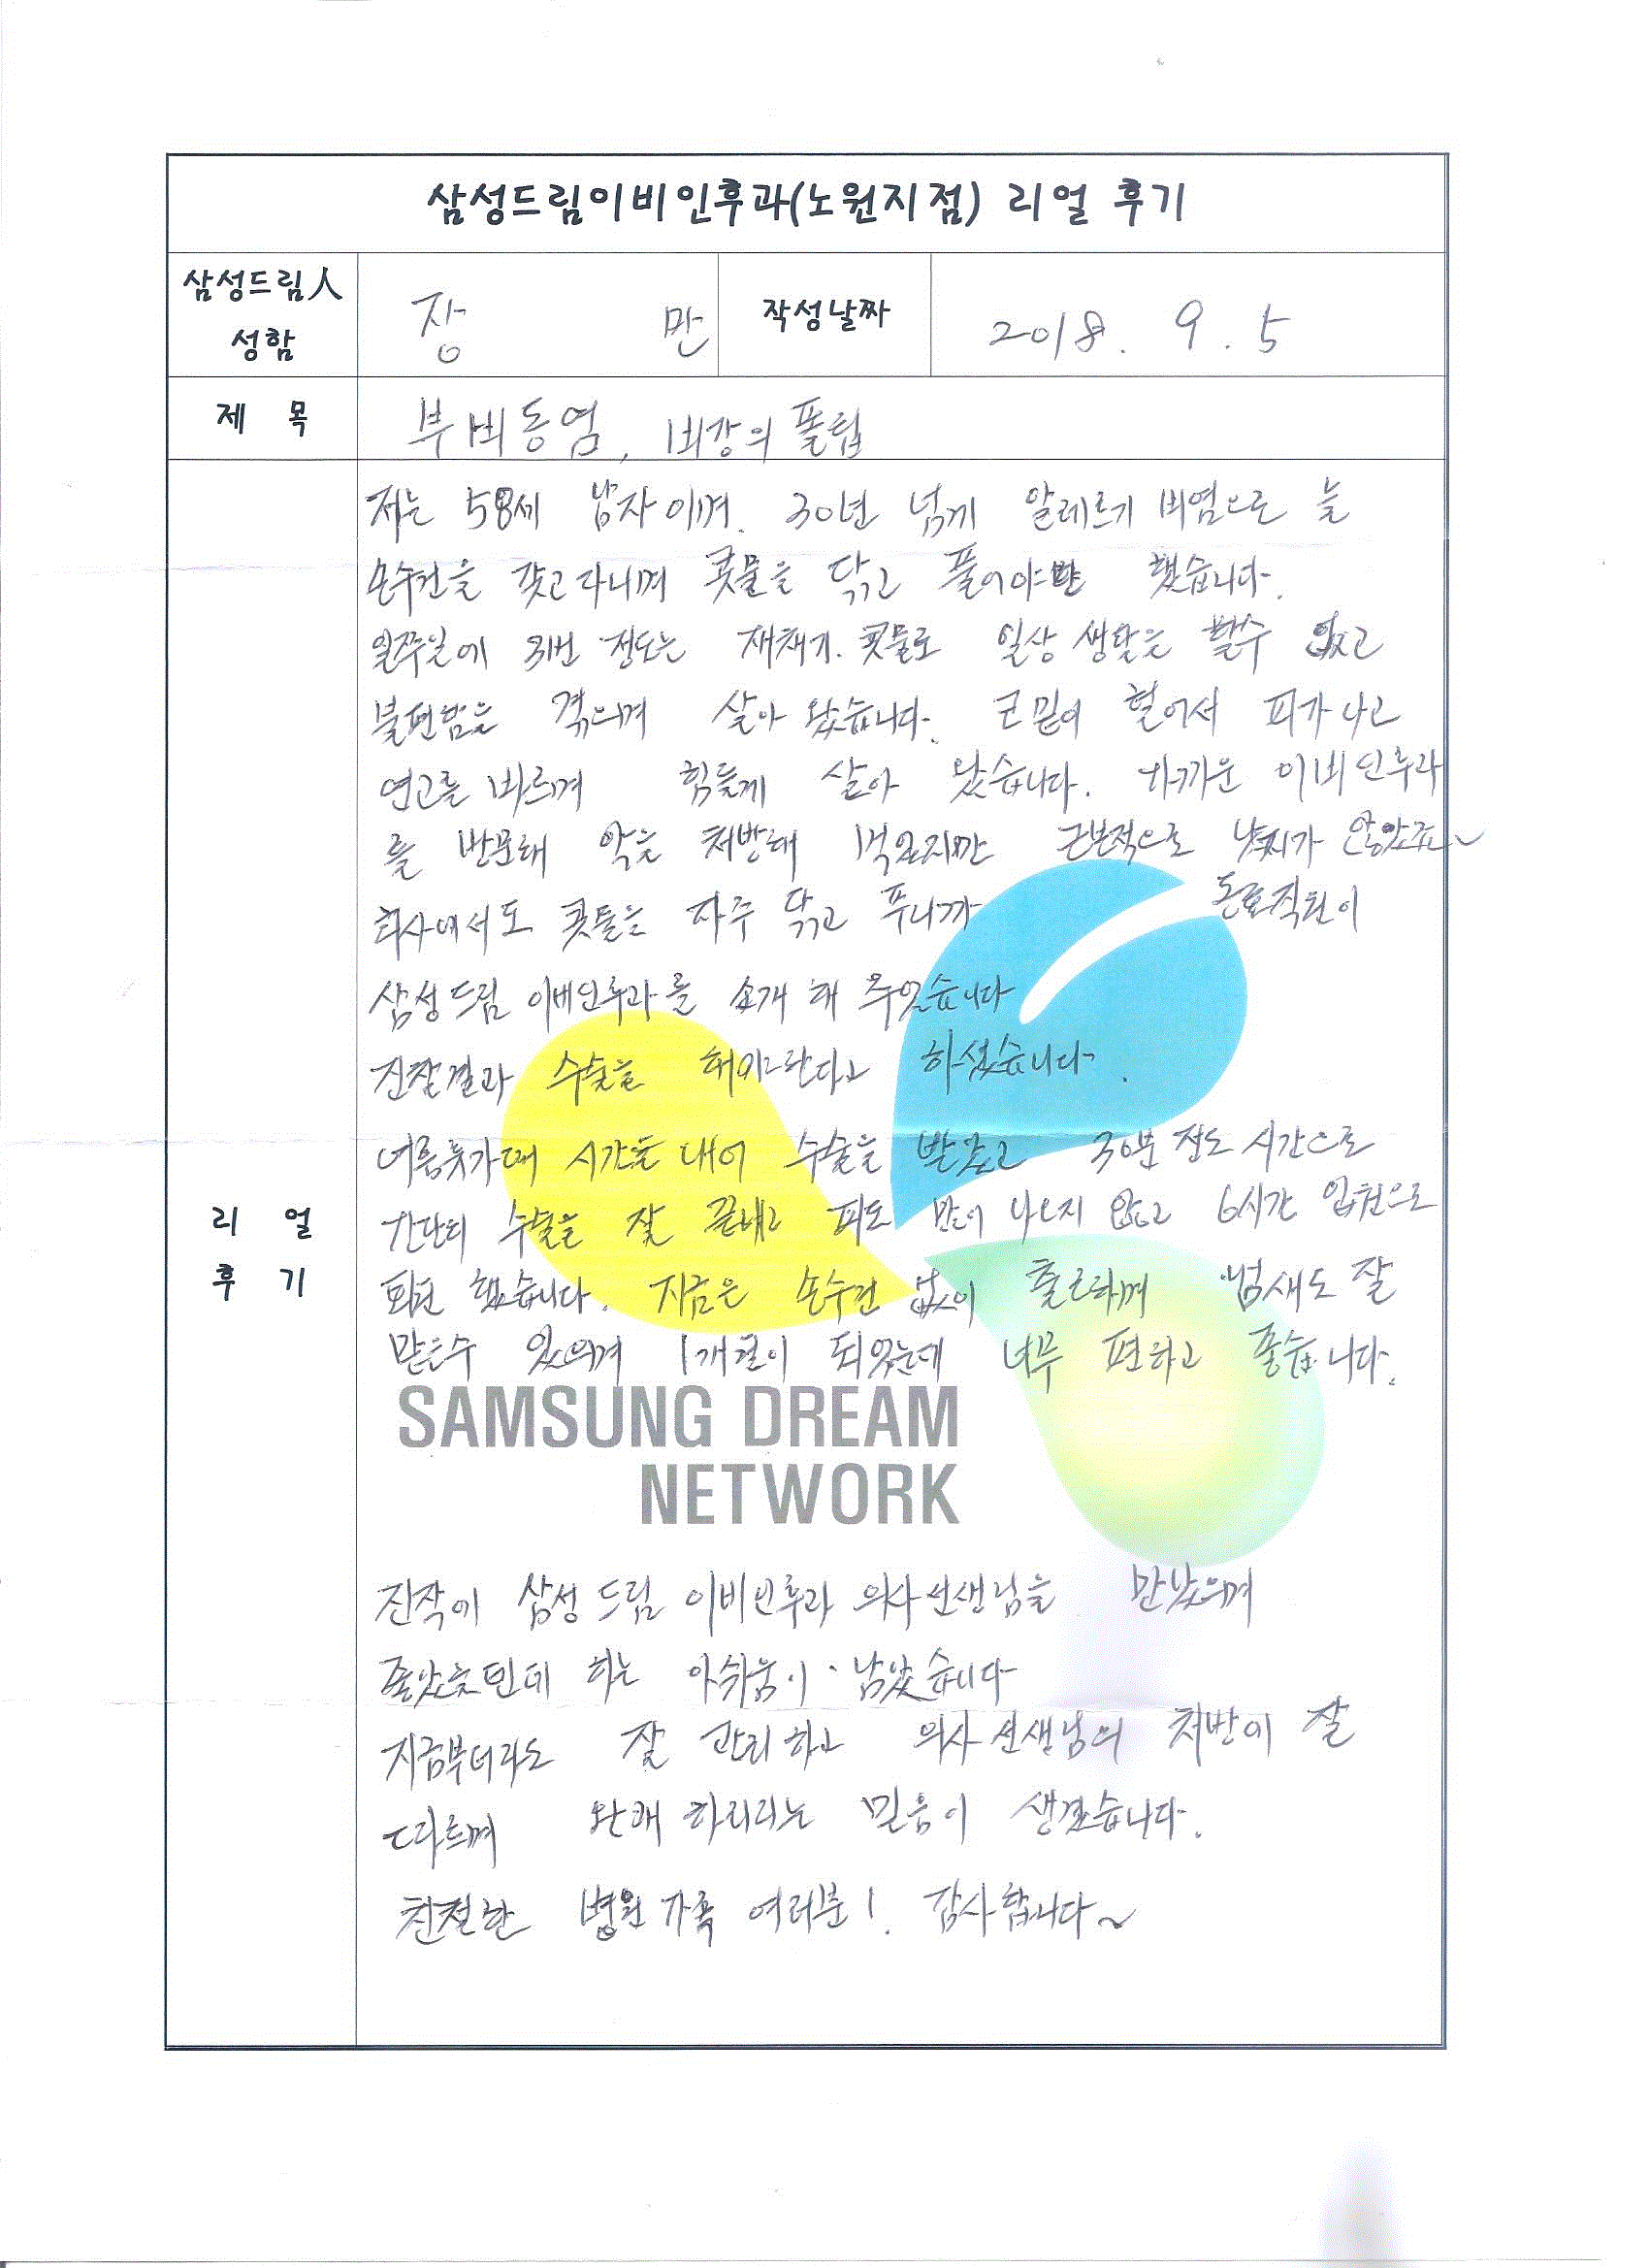 삼성드림이비인후과(노원지점) 리얼 후기
삼성드림人 성함
장 만
작성날짜
2018. 9. 5
제 목
부비동염, 비강의 폴립
리 얼 후 기
저는 58세 남자이며, 30년 넘게 알레르기 비염으로 늘
손수건을 갖고 다니며 콧물을 닦고 풀어야만 했습니다.
일주일에 3번 정도는 재채기. 콧물로 일상 생활을 할수 없고
불편함을 겪으며 살아 왔습니다. 코밑이 헐어서 피가 나고
연고를 바르며 힘들게 살아 왔습니다. 가까운 이비인후과
를 방문해 약을 처방해 먹었지만 근본적으로 낫지가 않았죠~
회사에서도 콧물을 자주 닦고 푸니까 동료직원이
삼성드림 이비인후과를 소개 해 주었습니다
진찰결과 수술을 해야한다고 하셨습니다.
여름휴가때 시간을 내어 수술을 받았고 30분 정도 시간으로
간단히 수술을 잘 끝내고 피도 많이 나오지 않고 6시간 입원으로
퇴원 했습니다. 지금은 손수건 없이 출근하며 냄새도 잘
맡을수 있으며 1개월이 되었는데 너무 편하고 좋습니다.
SAMSUNG DREAM
NETWORK
진작에 삼성드림 이비인후과 의사선생님을 만났으며
좋았을텐데 하는 아쉬움이 남았습니다
지금부터라도 잘 관리하고 의사선생님의 처방에 잘
따르며 완쾌 하리라는 믿음이 생겼습니다.
친절한 병원가족 여러분! 감사합니다~